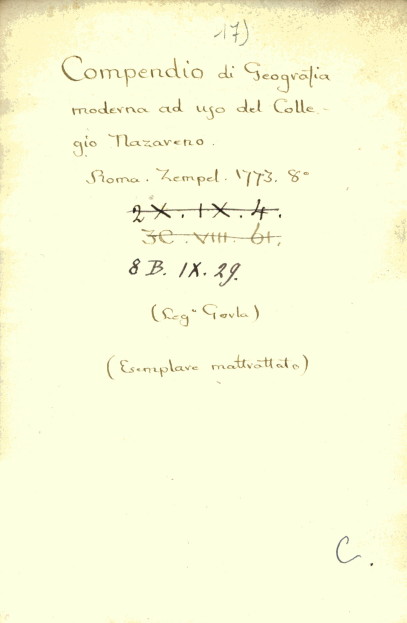 17)
Compendio di Geografia
moderna ad uso del Colle-
gio Nazareno.
Roma. Zempel. 1773. 8°
2 X. IX. 4.
3C. VIII. 61.
8 B. IX. 29.
(Leg.ª Gorla)
(Esemplare maltrattato)
C.